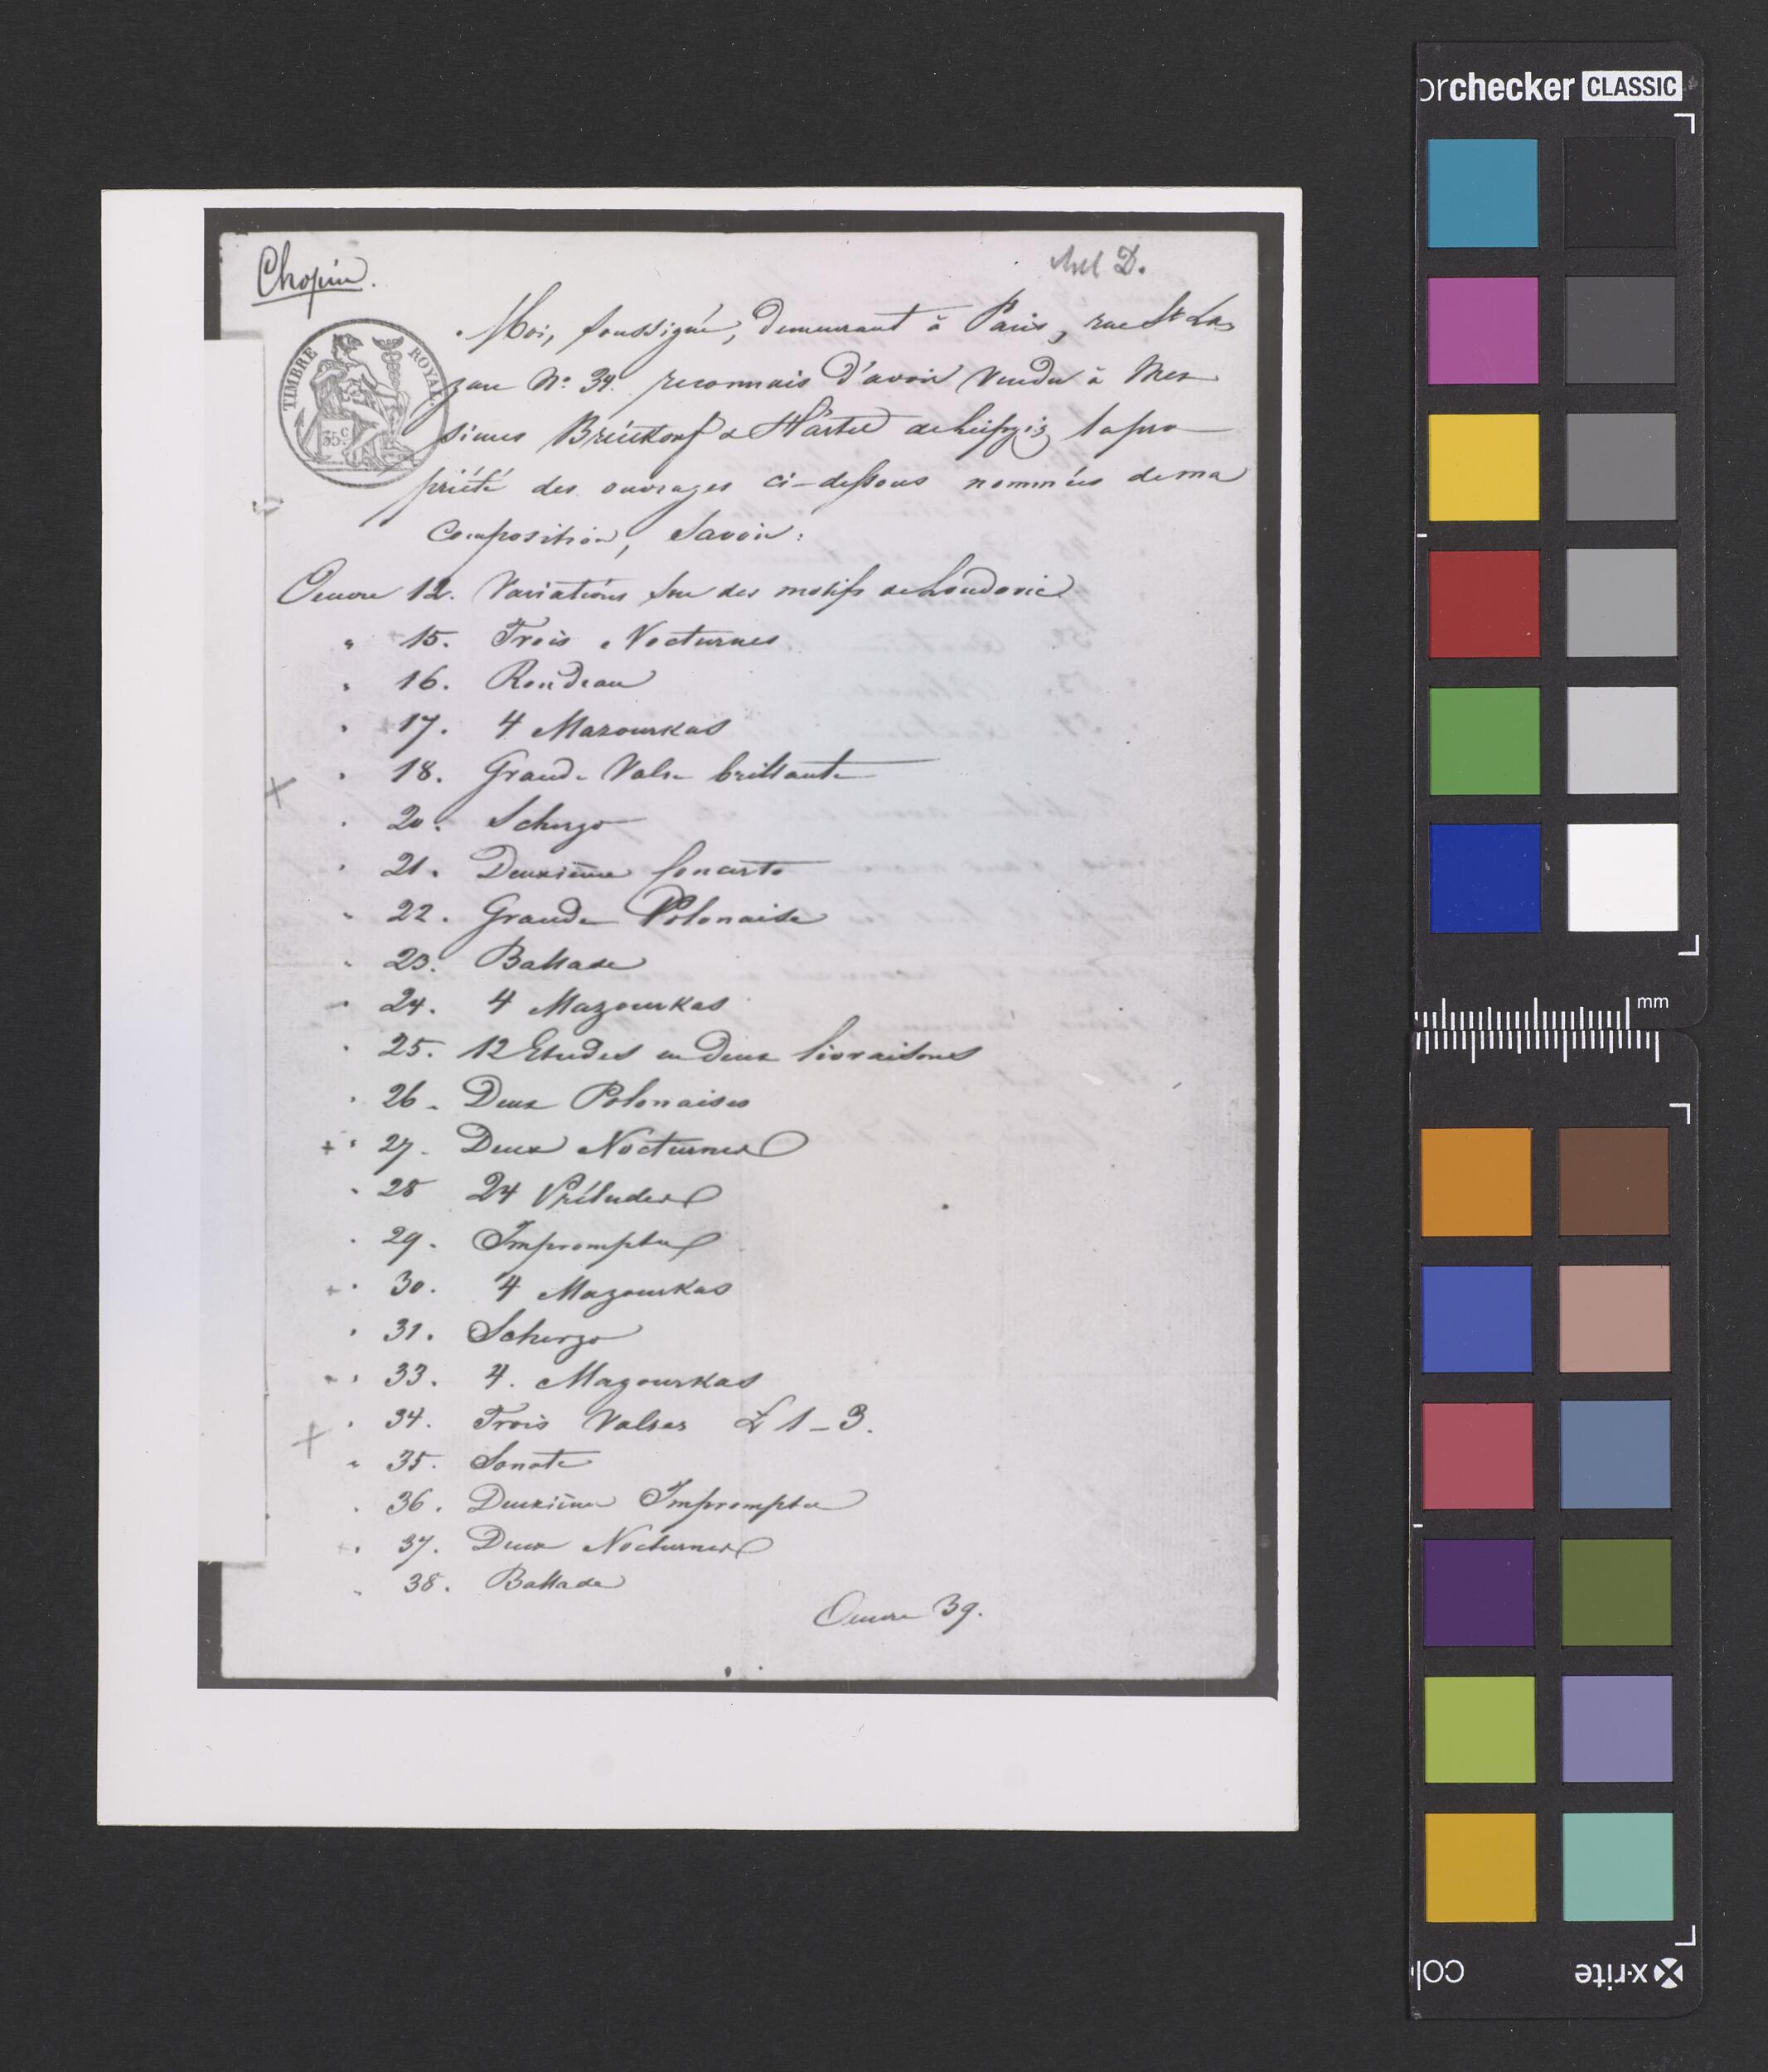 Chopin.
D.
TIMBRE ROYAL.
35c
Moi, soussigné, demeurant à Paris, rue St La-
zare No. 34. reconnais d'avoir vendu à Mes-
sieurs Breitkopf & Härtel de Leipzig la pro-
priété des ouvrages ci-dessous nommées de ma
composition, savoir:
Oeuvre 12. Variations sur des motifs de Loudovic
" 15. Trois Nocturnes
" 16. Rondeau
" 17. 4 Mazourkas
" 18. Grande Valse brillante
" 20. Scherzo
" 21. Deuxième Concerto
" 22. Grande Polonaise
" 23. Ballade
" 24. 4 Mazourkas
" 25. 12 Etudes en deux livraisons
" 26. Deux Polonaises
+ " 27. Deux Nocturnes
" 28 24 Préludes
" 29. Impromptu
+ " 30. 4 Mazourkas
" 31. Scherzo
" 33. 4. Mazourkas
" 34. Trois Valses 1-3.
" 35. Sonate
" 36. Deuxième Impromptu
" 37. Deux Nocturnes
" 38. Ballade
Oeuvre 39.
orchecker CLASSIC
mm
x-rite
col